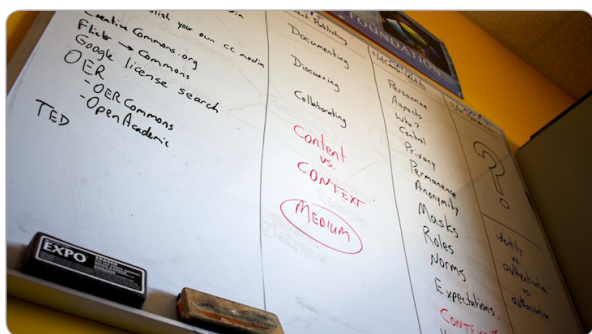 FOUNDATION
publish your own cc media
Creative Commons.org
Flickr → Commons
Google license search
OER
- OER Commons
- Open Academic
TED
Publishing
Documenting
Discussing
Collaborating
Content
vs.
CONTEXT
MEDIUM
Personae
Aspects
Who?
Control
Privacy
Permanence
Anonymity
Masks
Roles
Norms
Expectations
CONTEXT
?
identity
vs
authentication
vs
authorization
EXPO